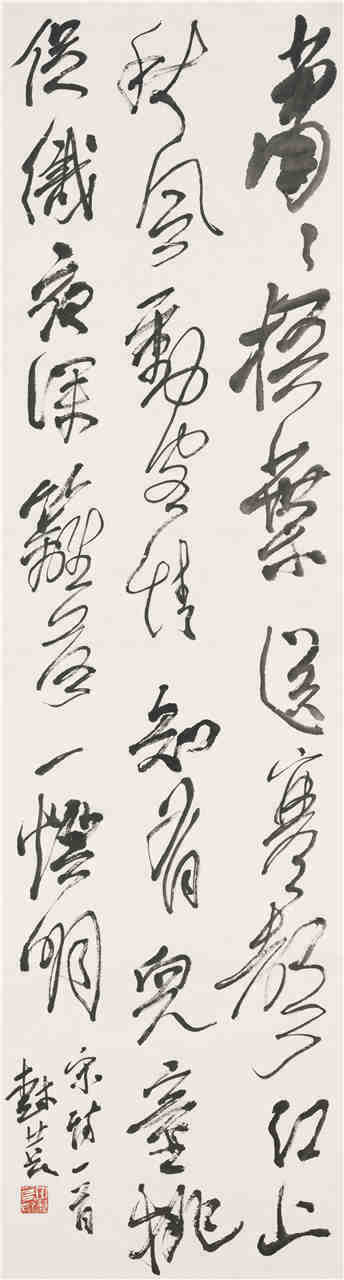 萧〻梧叶送寒声江上
秋风动客情知有儿童挑
促织夜深篱落一灯明
宋诗一首